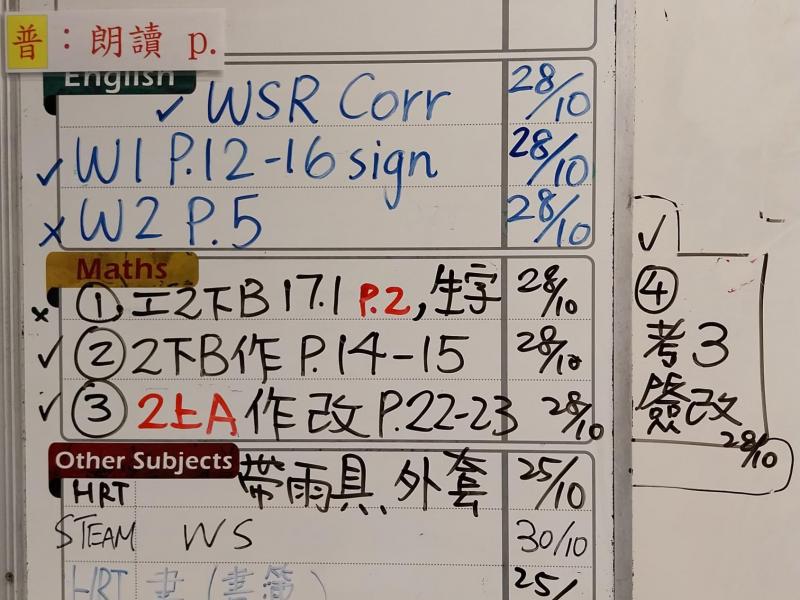 普：朗讀 p.
English
✓ WSR Corr 28/10
✓ W1 P.12-16 sign 28/10
x W2 P.5 28/10
Maths
x ① 工2下B 17.1 P.2, 生字 28/10
✓ ② 2下B作 P.14-15 28/10
✓ ③ 2上A 作改 P.22-23 28/10
✓
④
考3
簽改
28/10
Other Subjects
HRT 帶雨具、外套 25/10
STEAM WS 30/10
HRT 25/